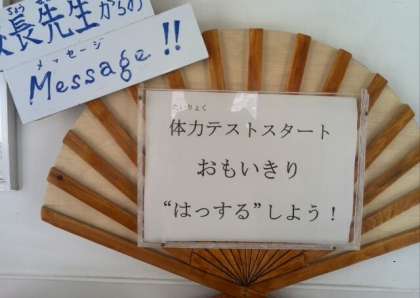 長先生からの
メッセージ
Message!!
たいりょく
体力テストスタート
おもいきり
“はっする”しよう！